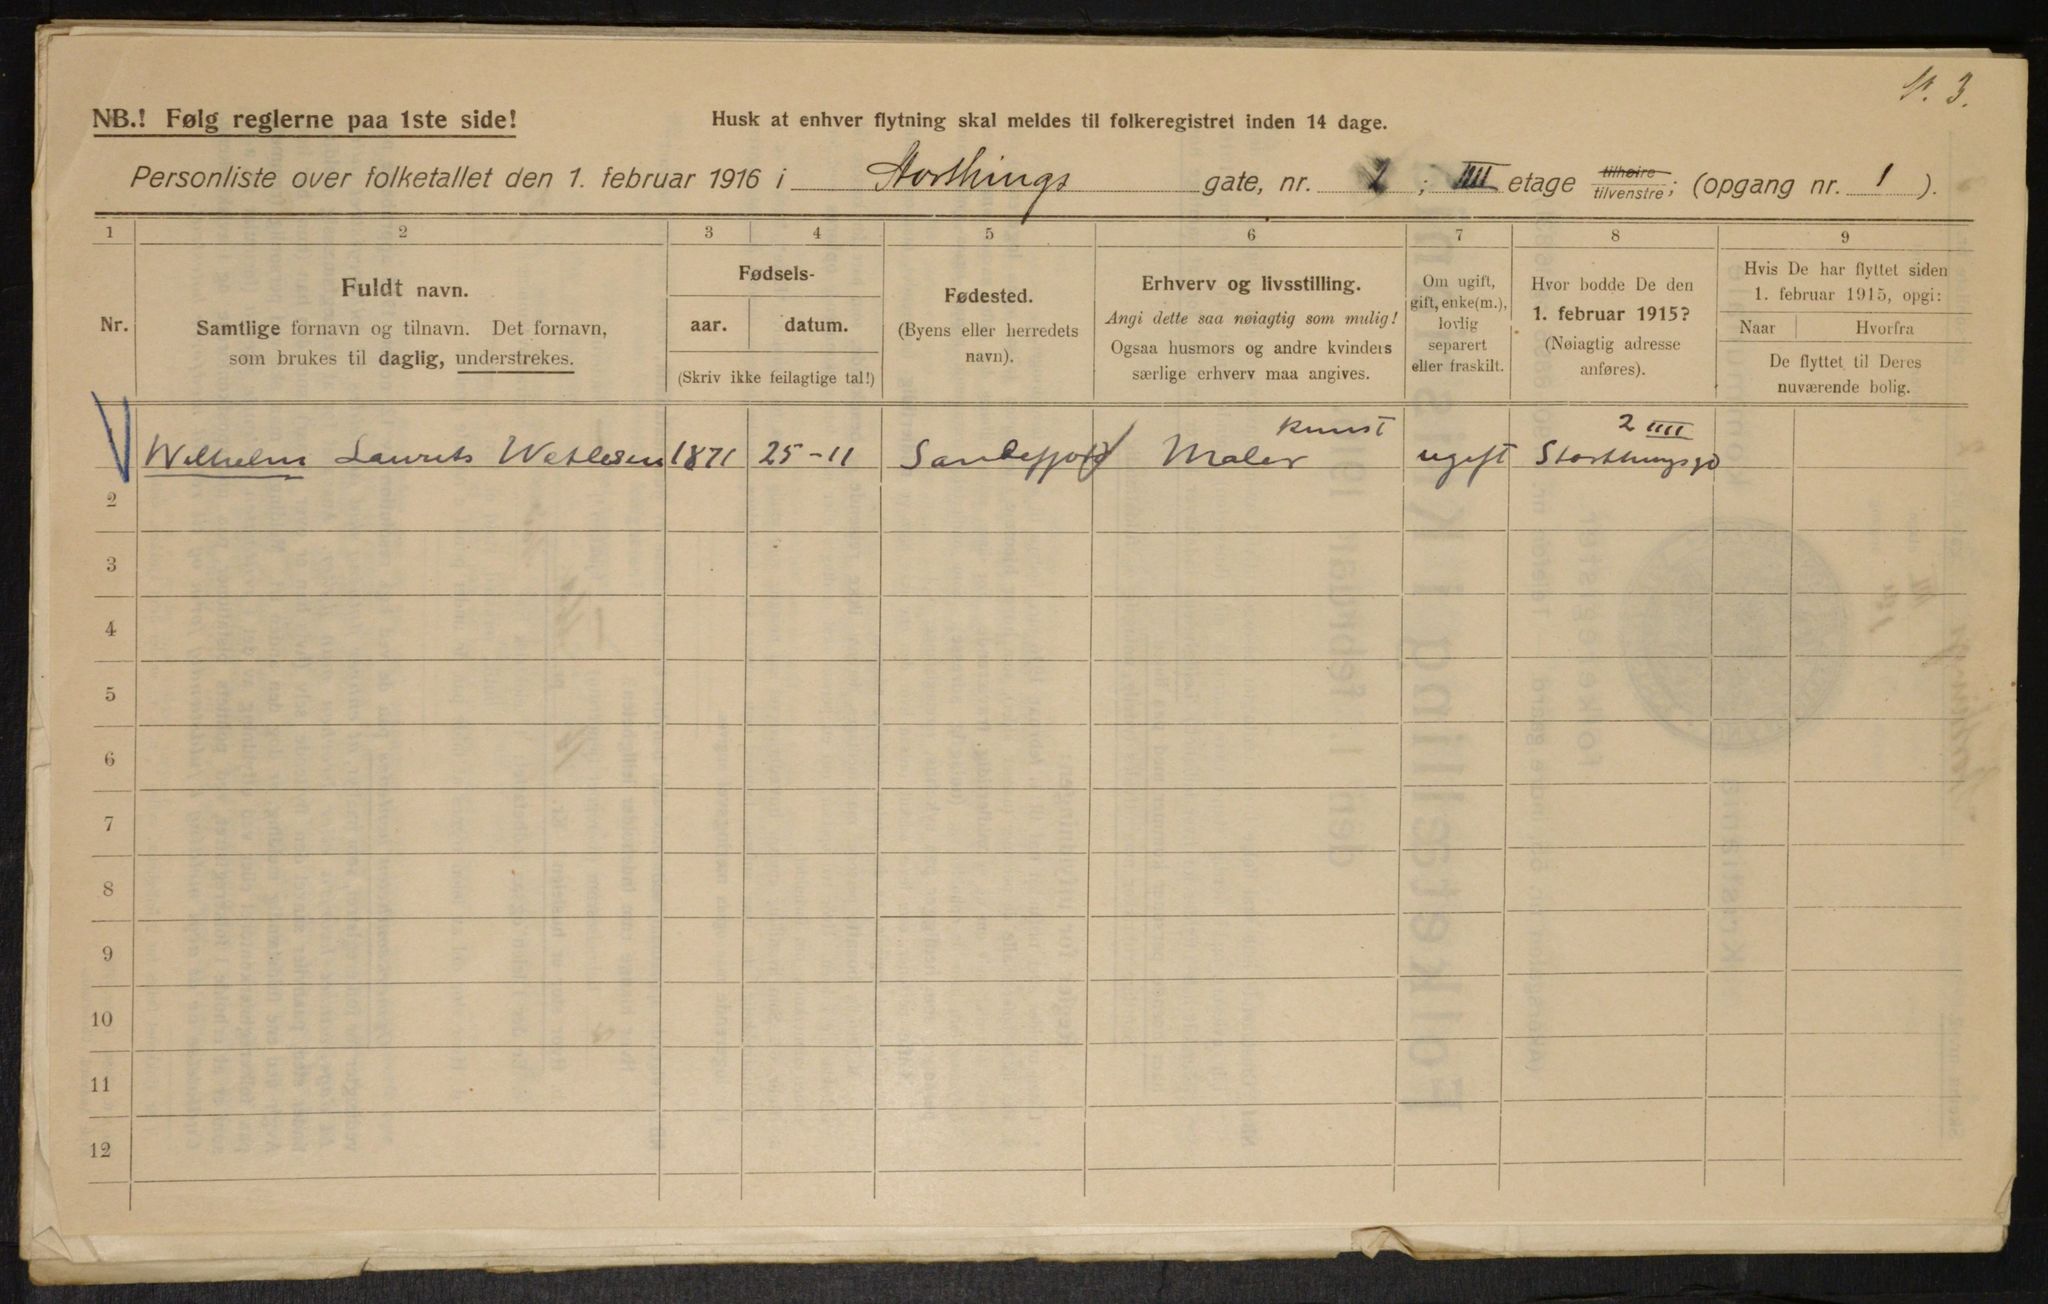 N. 3.
NB.! Følg reglerne paa 1ste side!
Husk at enhver flytning skal meldes til folkeregistret inden 14 dage.
Personliste over folketallet den 1. februar 1916 i Storthings gate, nr. 2 ; IIII etage tilhøire/tilvenstre; (opgang nr. 1 ).
1 2 3 4 5 6 7 8 9
Nr.
Fuldt navn.
Samtlige fornavn og tilnavn. Det fornavn,
som brukes til daglig, understrekes.
Fødsels-
aar. datum.
(Skriv ikke feilagtige tal!)
Fødested.
(Byens eller herredets
navn).
Erhverv og livsstilling.
Angi dette saa nøiagtig som mulig!
Ogsaa husmors og andre kvinders
særlige erhverv maa angives.
Om ugift,
gift, enke(m.),
lovlig
separert
eller fraskilt.
Hvor bodde De den
1. februar 1915?
(Nøiagtig adresse
anføres).
Hvis De har flyttet siden
1. februar 1915, opgi:
Naar Hvorfra
De flyttet til Deres
nuværende bolig.
Kunst 2 IIII
Wilhelm Laurits Wetlesen 1871 25-11 Sandefjord Maler ugift Storthingsgd
2
3
4
5
6
7
8
9
10
11
12